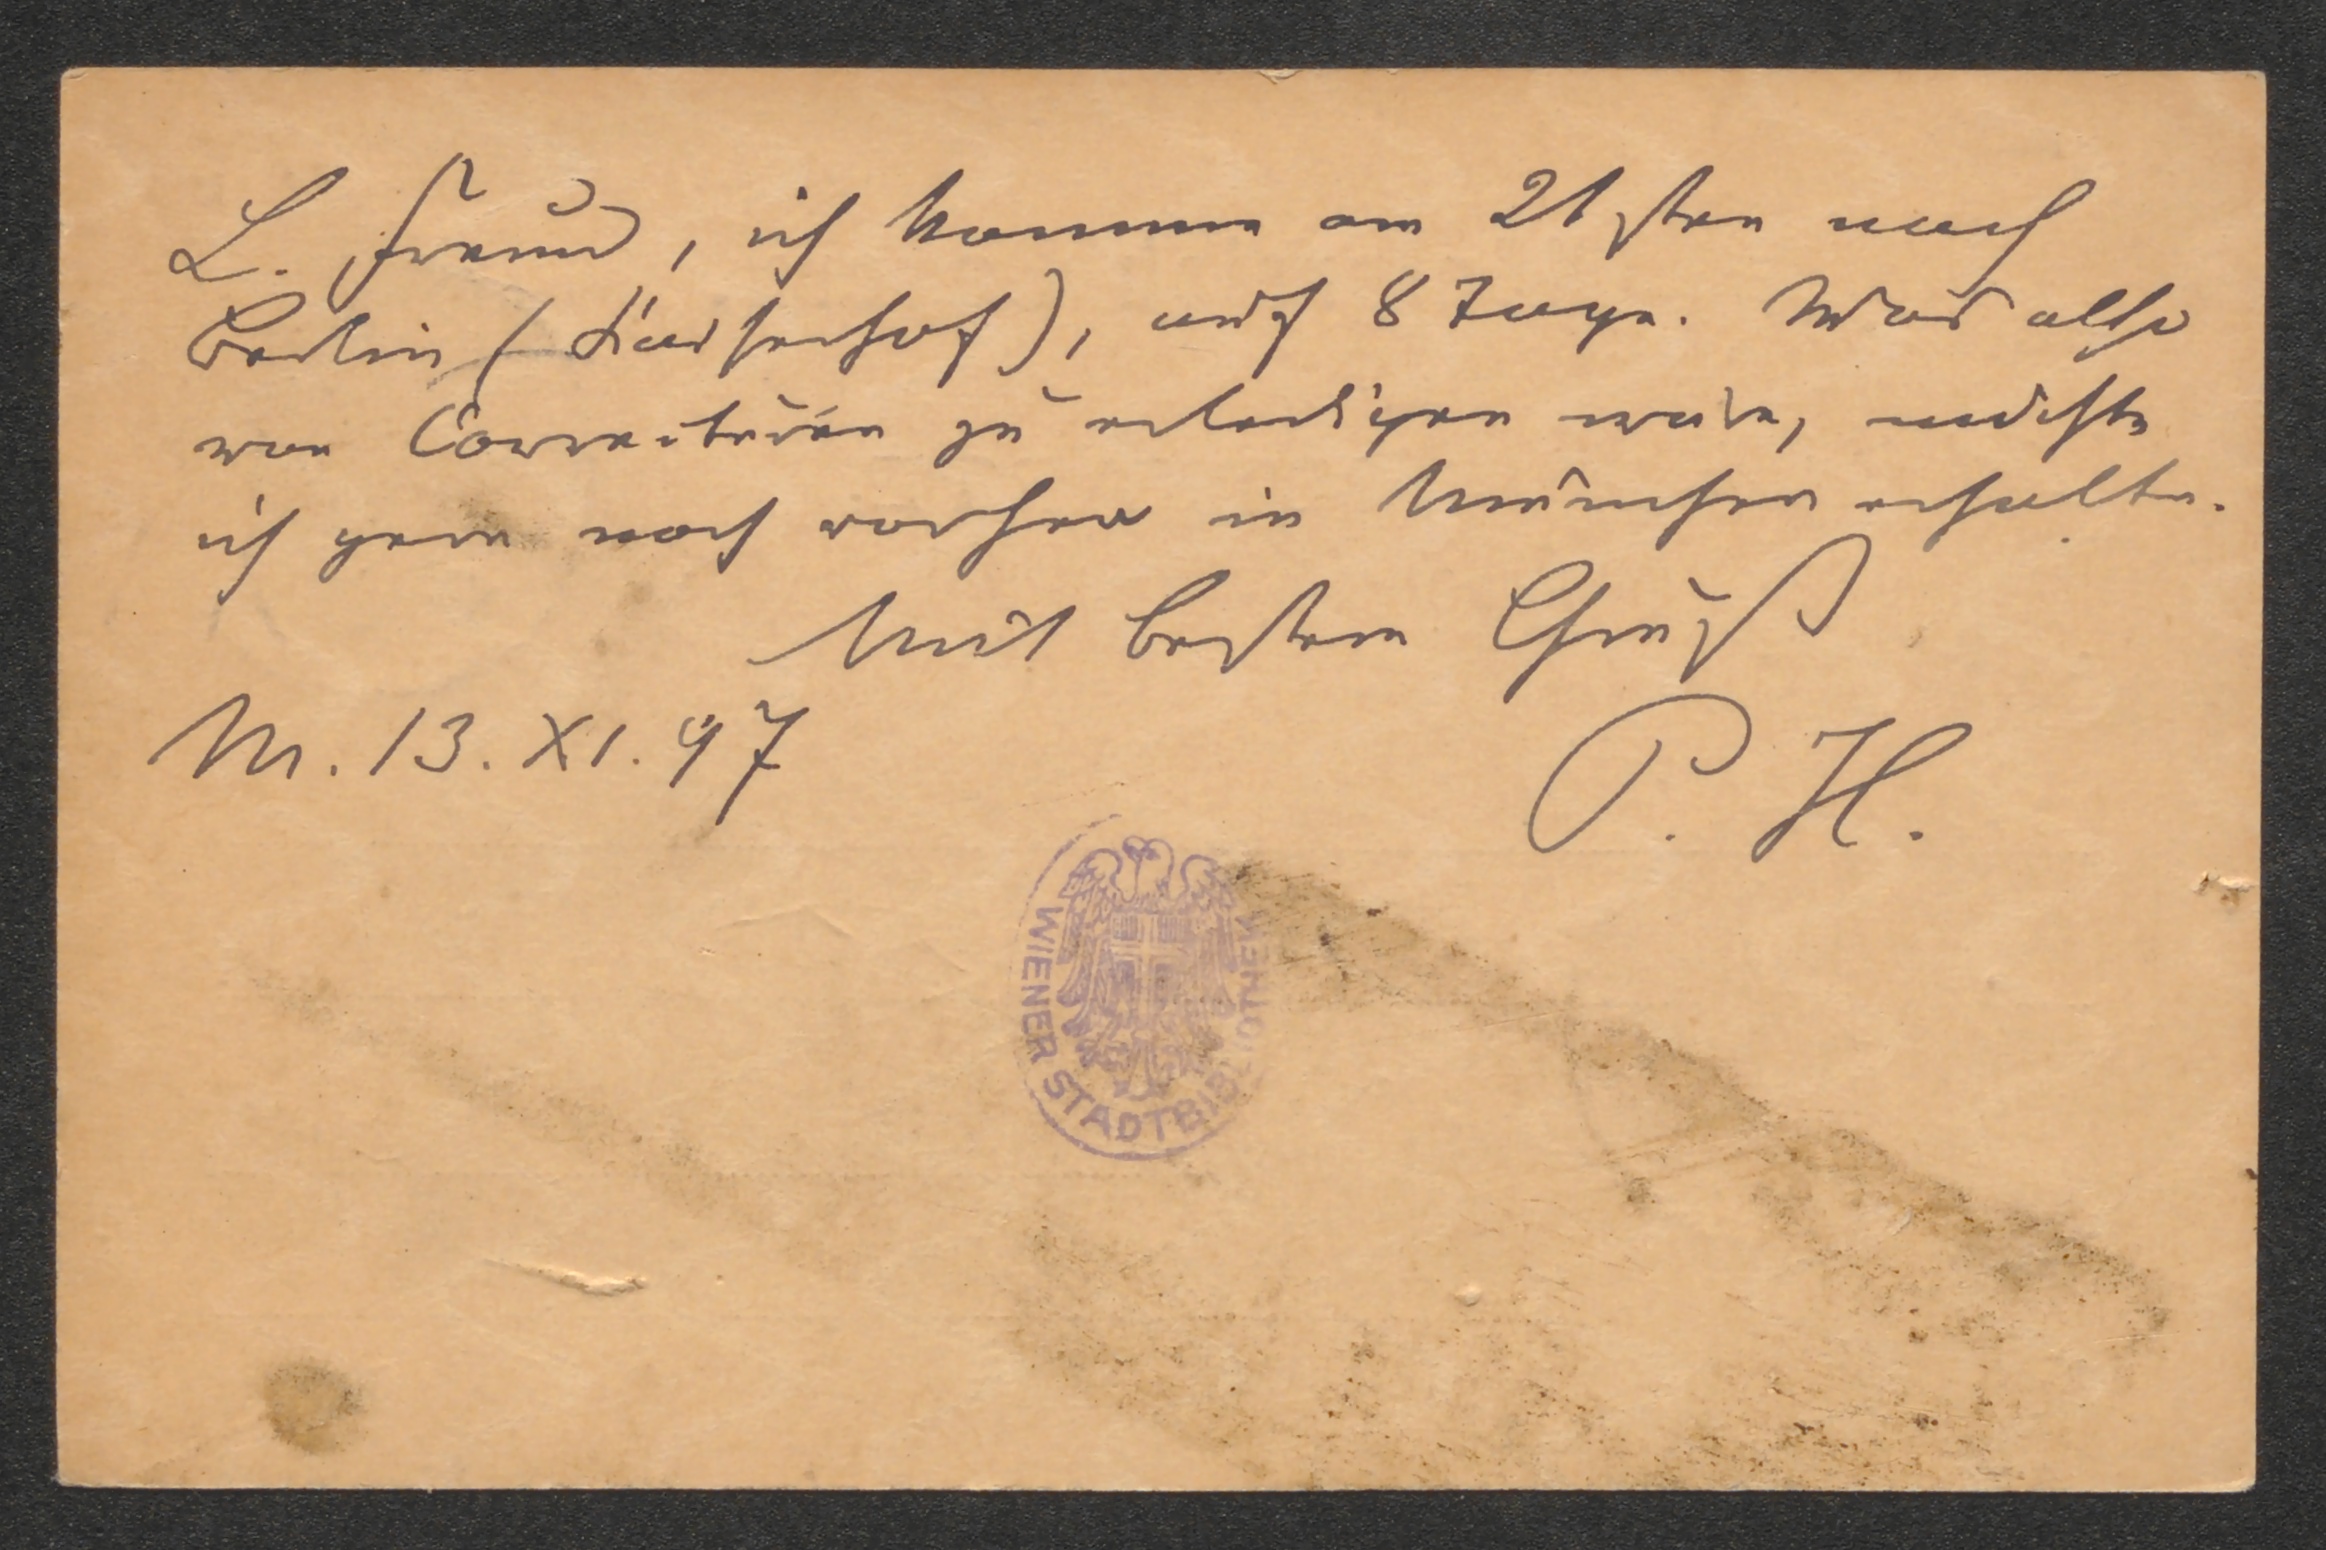 L. Freund, ich komme am 21sten nach
Berlin (Kaiserhof), auf 8 Tage. Was also
von Correcturen zu erledigen wäre, möchte
ich gern noch vorher in München erhalten.
Mit bestem Gruß
M. 13. XI. 97
P. H.
WIENER STADTBIBLIOTHEK